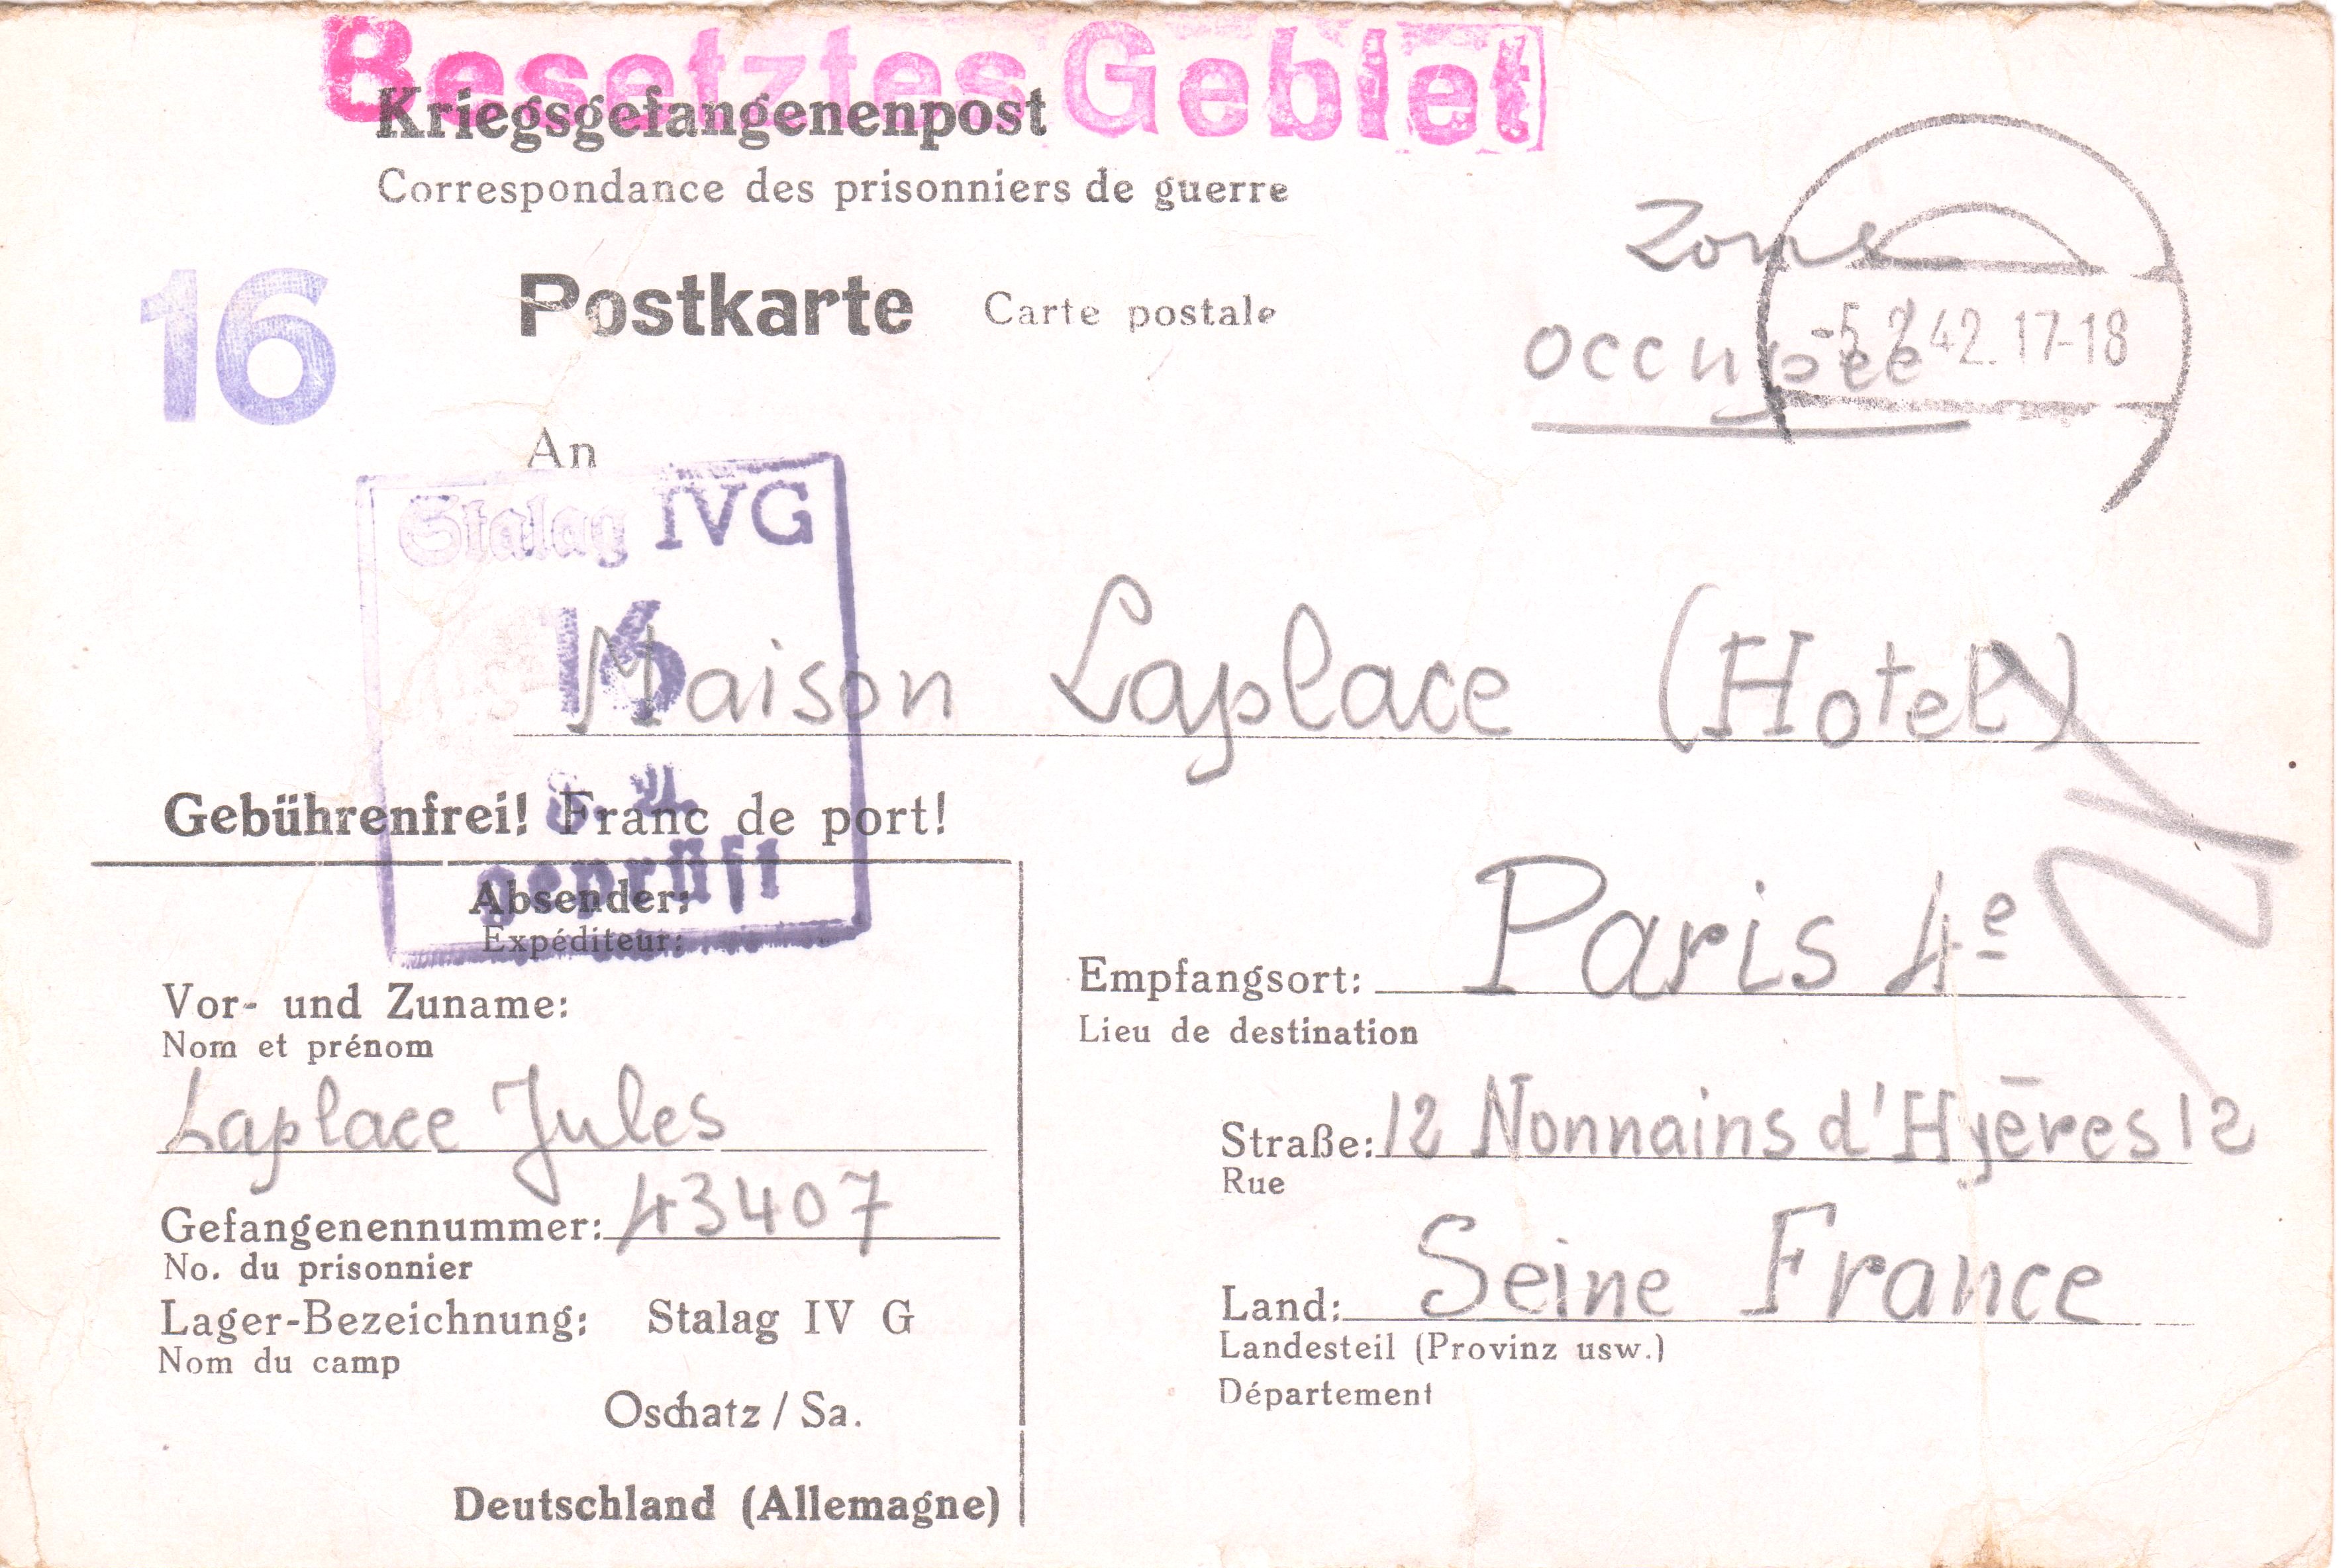 Besetztes Gebiet
Kriegsgefangenenpost
Correspondance des prisonniers de guerre
16
Postkarte Carte postale
Zone
occupée
-5.2.42.17-18
An
Stalag IVG
16
Maison Laplace (Hotel)
Gebührenfrei! Franc de port!
geprüft
Absender:
Expéditeur:
Vor- und Zuname:
Nom et prénom
Laplace Jules
Gefangenennummer: 43407
No. du prisonnier
Lager-Bezeichnung: Stalag IV G
Nom du camp
Oschatz / Sa.
Deutschland (Allemagne)
Empfangsort: Paris 4e
Lieu de destination
Straße: 12 Nonnains d'Hyères 12
Rue
Land: Seine France
Landesteil (Provinz usw.)
Département